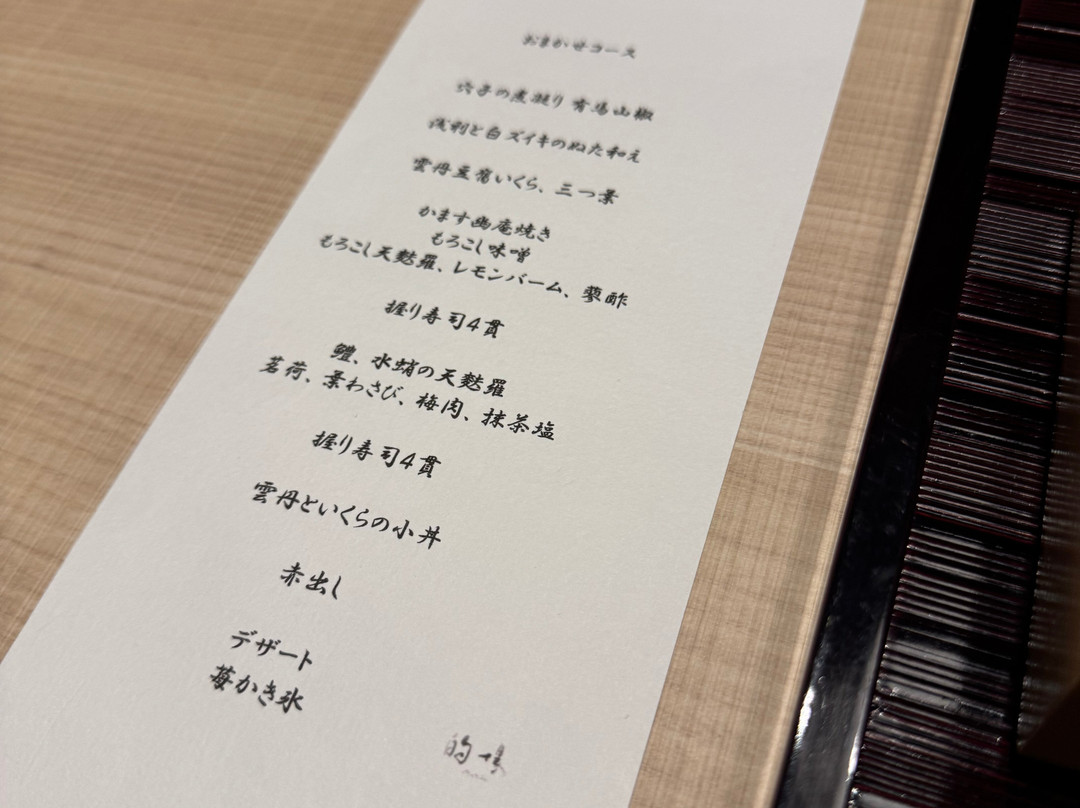 おまかせコース
穴子の煮凝り 有馬山椒
浅利と白ズイキのぬた和え
雲丹豆富いくら、三つ葉
かます幽庵焼き
もろこし味噌
もろこし天麩羅、レモンバーム、蓼酢
握り寿司4貫
鱧、水蛸の天麩羅
茗荷、葉わさび、梅肉、抹茶塩
握り寿司4貫
雲丹といくらの小丼
赤出し
デザート
苺かき氷
的場